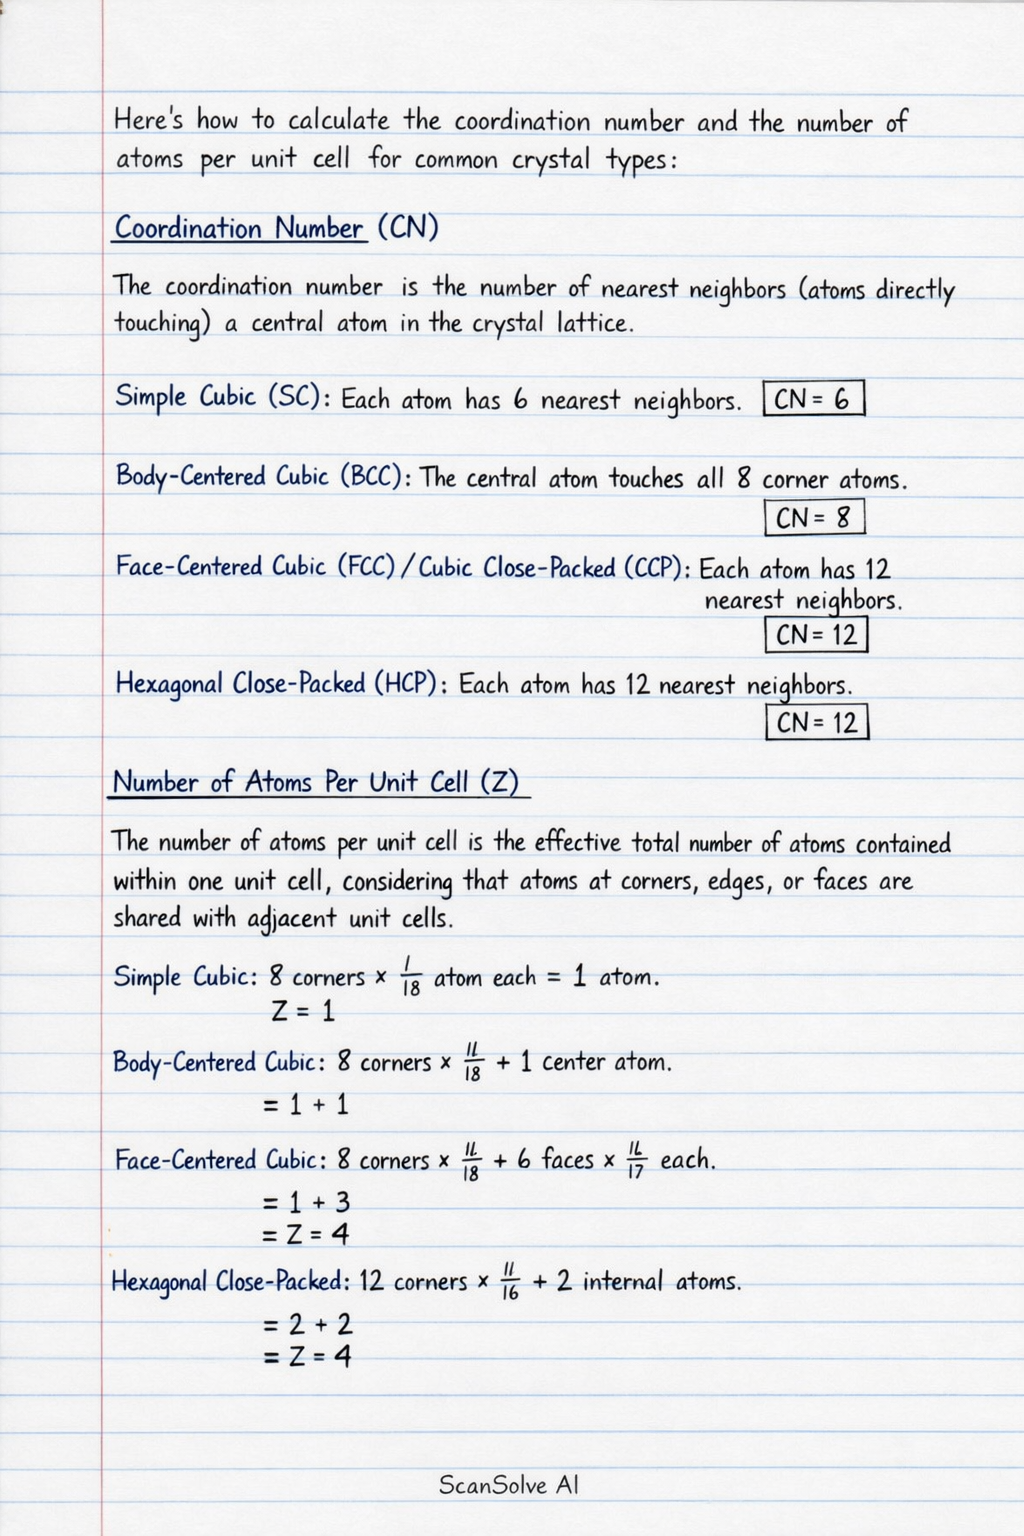 Here's how to calculate the coordination number and the number of
atoms per unit cell for common crystal types:
Coordination Number (CN)
The coordination number is the number of nearest neighbors (atoms directly
touching) a central atom in the crystal lattice.
Simple Cubic (SC): Each atom has 6 nearest neighbors. CN = 6
Body-Centered Cubic (BCC): The central atom touches all 8 corner atoms.
CN = 8
Face-Centered Cubic (FCC) / Cubic Close-Packed (CCP): Each atom has 12
nearest neighbors.
CN = 12
Hexagonal Close-Packed (HCP): Each atom has 12 nearest neighbors.
CN = 12
Number of Atoms Per Unit Cell (Z)
The number of atoms per unit cell is the effective total number of atoms contained
within one unit cell, considering that atoms at corners, edges, or faces are
shared with adjacent unit cells.
Simple Cubic: 8 corners × 1/18 atom each = 1 atom.
Z = 1
Body-Centered Cubic: 8 corners × 11/18 + 1 center atom.
= 1 + 1
Face-Centered Cubic: 8 corners × 11/18 + 6 faces × 11/17 each.
= 1 + 3
= Z = 4
Hexagonal Close-Packed: 12 corners × 11/16 + 2 internal atoms.
= 2 + 2
= Z = 4
ScanSolve AI